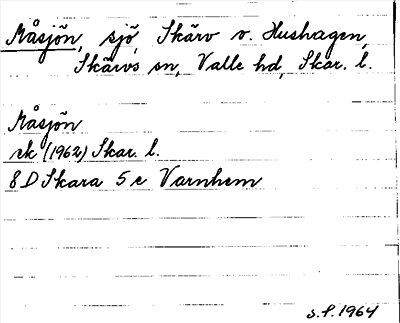 Måsjön, sjö, Skärv v. Hushagen,
Skärvs sn, Valle hd, Skar. l.
Måsjön
ek (1962) Skar. l.
8 D Skara 5 e Varnhem
s.f. 1964